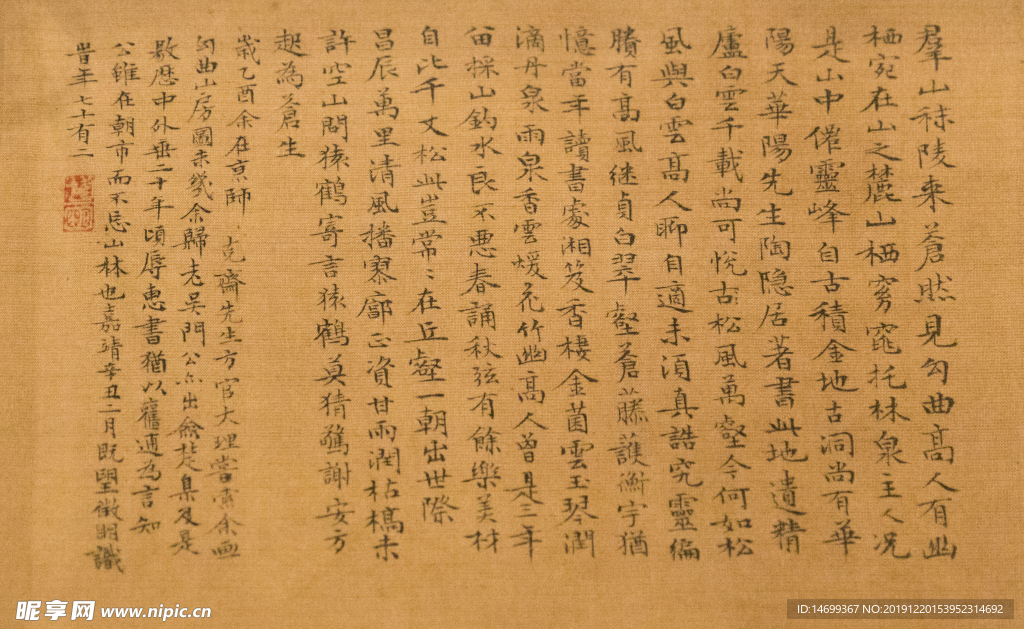 羣山秣陵来蒼然見勾曲高人有幽
栖宛在山之麓山栖窮窕托林泉主人况
是山中傕靈峰自古積金地古洞尚有華
陽天華陽先生陶隐居著書此地遺精
廬白雲千載尚可悦古松風萬壑今何如松
風與白雲高人聊自適未須真誥究靈編
賸有高風继貞白翠壑蒼藤護衡宇猶
憶當年讀書處湘笈香樓金菌雲玉琴潤
滴丹泉雨泉香雲煖花竹幽高人曾是三年
留採山釣水良不悪春誦秋弦有餘樂美材
自比千丈松此豈常:在丘壑一朝出世際
昌辰萬里清風播寥廓正資甘雨潤枯槁未
許空山問猿鶴寄言猿鶴莫猜驚謝安方
起為蒼生
歲乙酉余在京師 克齋先生方官大理嘗索余画
勾曲山房圖未幾余歸老吴門公亦出僉楚臬及是
敭歴中外垂二十年頃辱惠書猶以舊逋為言知
公雖在朝市而不忘山林也嘉靖辛丑二月既望徵明識
旹年七十有二
昵享网 www.nipic.cn
ID:14699367 NO:20191220153952314692